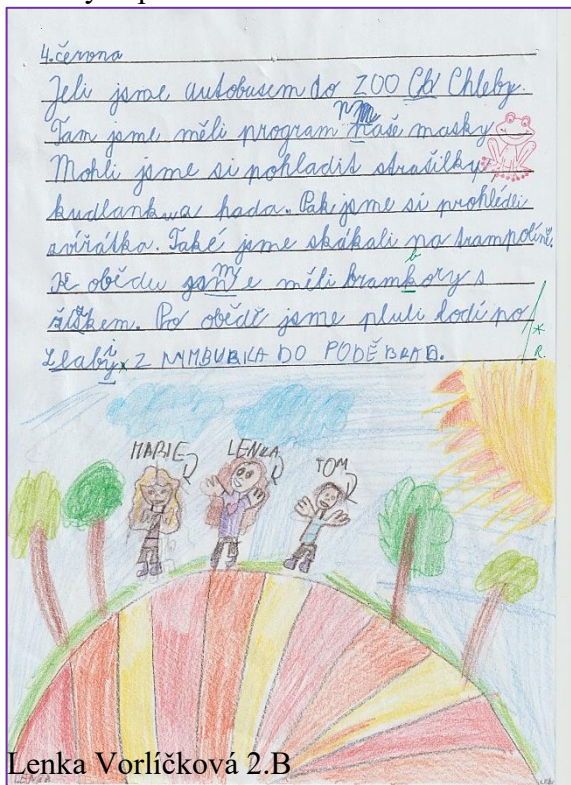 4. června
Jeli jsme autobusem do ZOO Ch Chleby.
Tam jsme měli program naše masky.
Mohli jsme si pohladit strašilky,
kudlanku a hada. Pak jsme si prohlédli
zvířátka. Také jsme skákali na trampolíně.
K obědu jsme měli bramkory s
řízkem. Po obědě jsme pluli lodí po
Llabi z NYMBURKA DO PODĚBRAD.
R.
MARIE
LENKA
TOM
Lenka Vorlíčková 2.B